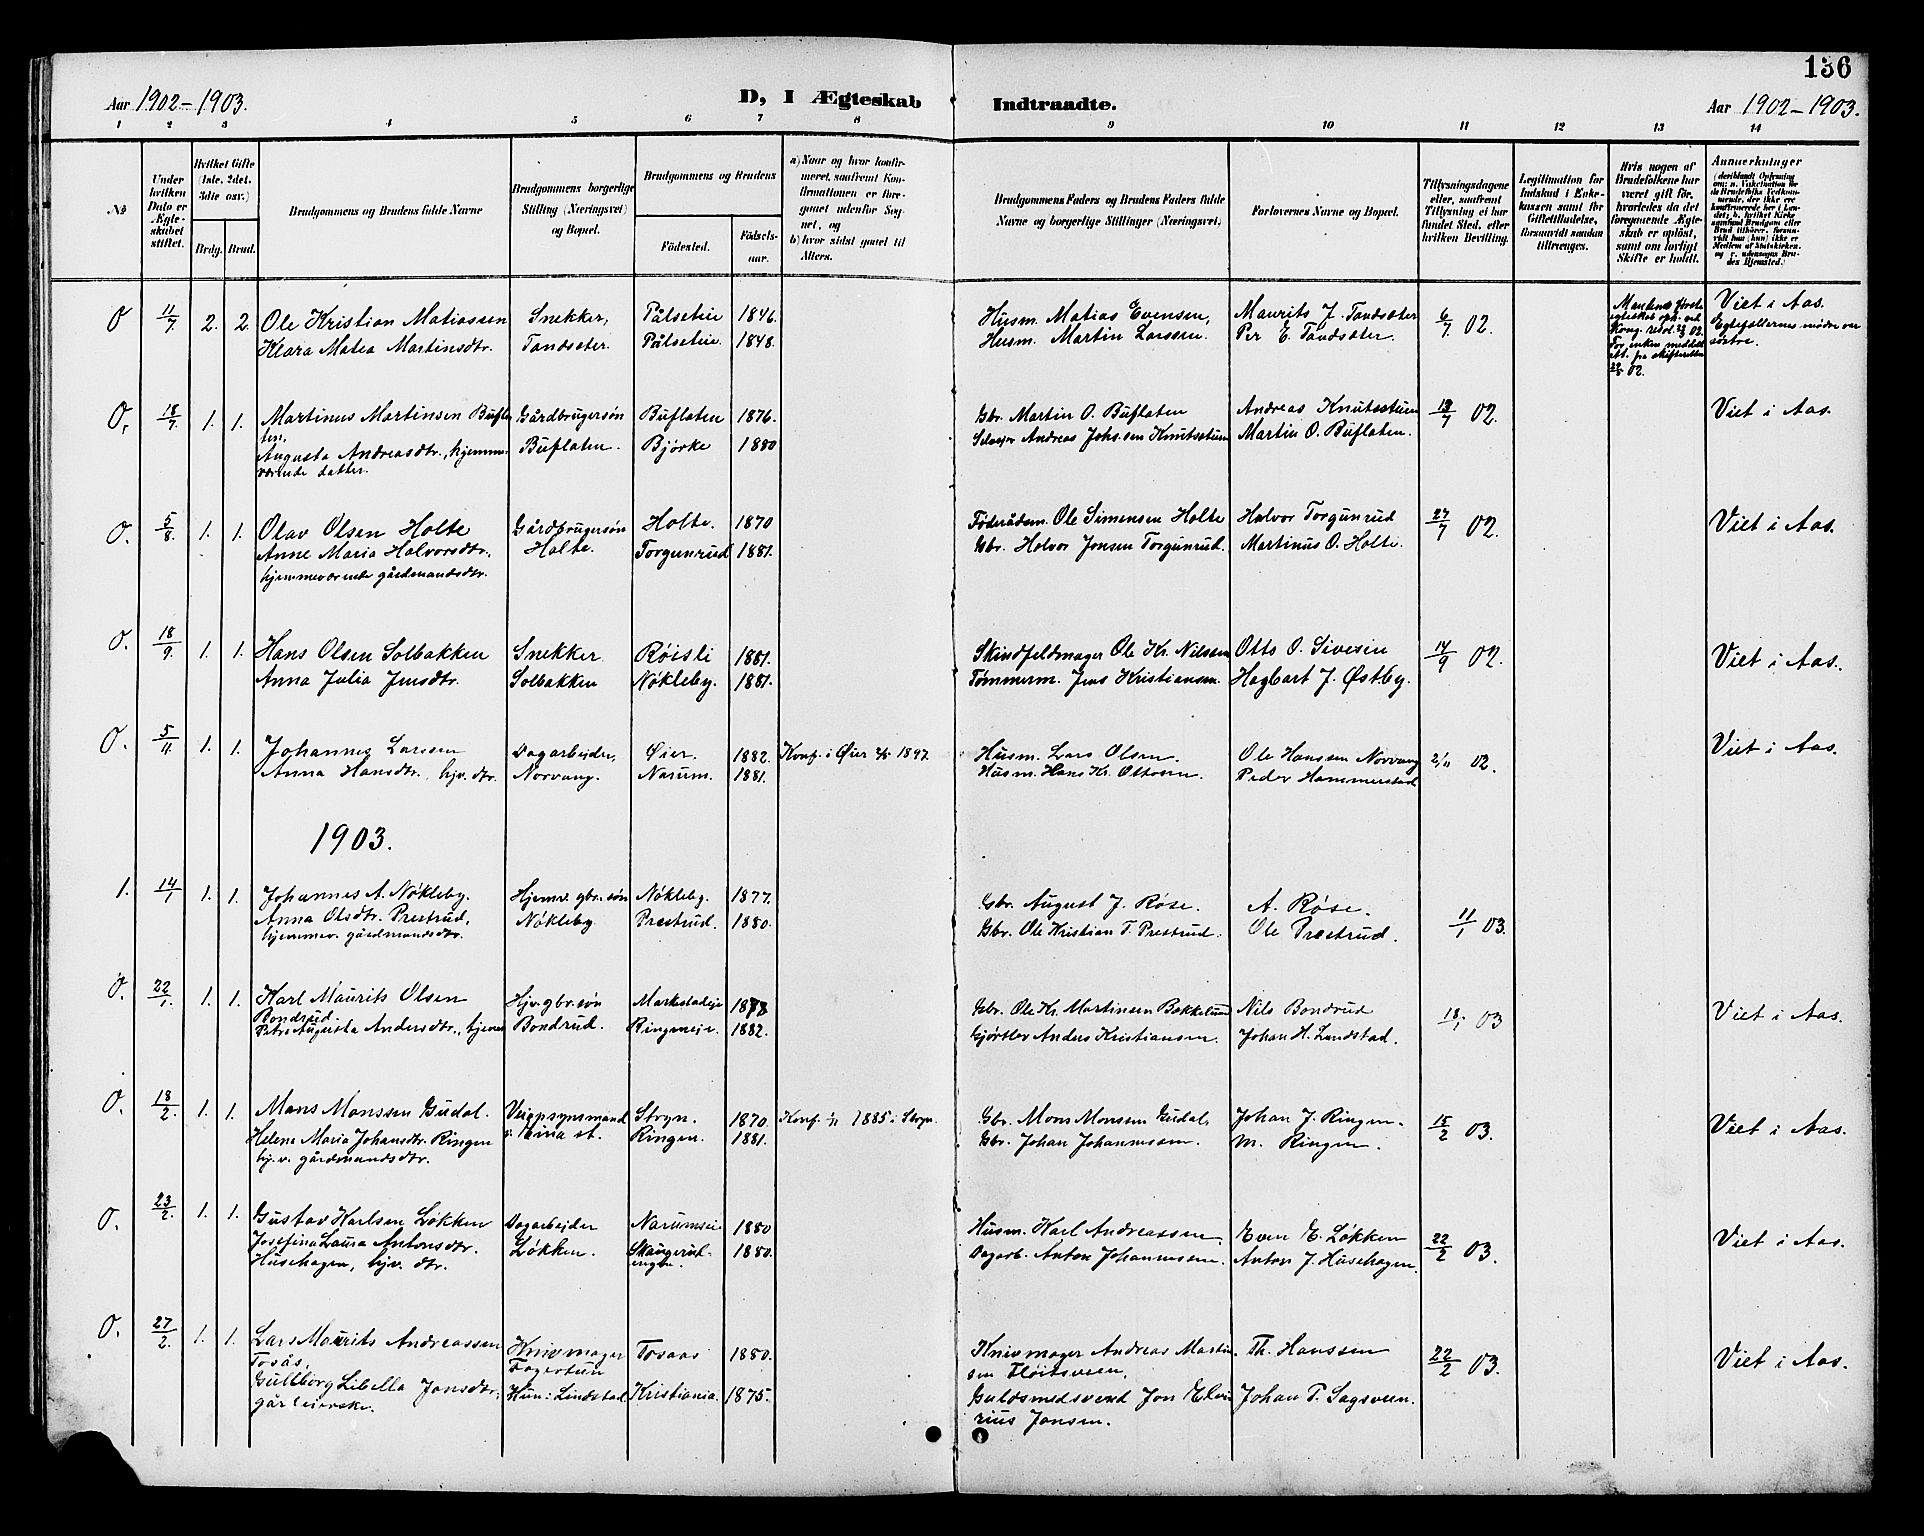 136
Aar 1902-1903. D, I Ægteskab Indtraadte. Aar 1902-1903.
1 2 3 4 5 6 7 8 9 10 11 12 13 14
No
Under hvilken Dato er Ægteskabet stiftet.
Hvilket Gifte (1ste, 2det, 3die osv.)
Brdg. Brud.
Brudgommens og Brudens fulde Navne
Brudgommens borgerlige Stilling (Næringsvei) og Bopæl.
Brudgommens og Brudens
Fødested. Fødselsaar.
a) Naar og hvor konfirmeret, saafremt Konfirmationen er foregaaet udenfor Sognet, og
b) hvor sidst gaaet til Alters.
Brudgommens Faders og Brudens Faders fulde Navne og borgerlige Stillinger (Næringsvei).
Forlovernes Navne og Bopæl.
Tillysningsdagene eller, saafremt Tillysning ei har fundet Sted, efter hvilken Bevilling.
Legitimation for Indskud i Enkekassen samt for Giftetilladelse, forsaavidt saadan tiltrænges.
Hvis nogen af Brudefolkene har været gift før, hvorledes da det foregaaende Ægteskab er opløst, samt om lovligt Skifte er holdt.
Anmerkninger
O 11/7 2. 2. Ole Kristian Matiassen Snekker, Pålseteie 1846. Husm. Matias Evensen, Maurits J. Tandsæter 6/7 02. Viet i Aas.
Klara Matea Martinsdtr. Tandsæter. Pålseteie. 1848. Husm. Martin Larssen. Per E. Tandsæter.
O, 18/7. 1. 1. Martinus Martinsen Bufla- Gårdbrugersøn Buflaten 1876. Gbr. Martin O. Buflaten Andreas Knutsstuen 13/7 02. Viet i Aas.
ten,
Augusta Andreasdtr., hjemme- Buflaten. Bjørke 1880 Andreas Johs.sen Knutsstuen Martin O. Buflaten.
værende datter.
O. 5/8. 1. 1. Olav Olsen Holte Gårdbrugersøn Holte. 1870 Føderådsm. Ole Simensen Holte Halvor Torgunrud 27/7 02. Viet i Aas.
Anne Maria Halvorsdtr. Holte. Torgunrud 1881. Gbr. Halvor Jonsen Torgunrud. Martinus O. Holte.
hjemmeværende gårdmandsdtr.
O. 18/9. 1. 1. Hans Olsen Solbakken Snekker Røisli 1881. Skindfeldmager Ole Kr. Nilssen Otto O. Sivesin 14/9 02. Viet i Aas.
Anna Julia Jensdtr. Solbakken Nøkleby. 1881. Tømmerm. Jens Kristiansen. Hagbart J. Østby.
O. 5/11. 1. 1. Johannes Larssen Dagarbeider, Øier. 1882. Konf. i Øier 1897. Husm. Lars Olsen. Ole Hanssen Norvang 2/11 02. Viet i Aas.
Anna Hansdtr. hjv. dtr. Norvang. Narum. 1881. Husm. Hans Kr. Ottosen. Peder Hammerstad
1903.
1. 14/1 1. 1. Johannes A. Nøkleby. Hjemv. gbr. søn Nøkleby. 1877. Gbr. August J. Røse. A. Røse. 11/1 03.
Anna Olsdtr. Prestrud, Nøkleby Prestrud. 1880. Gbr. Ole Kristian T. Prestrud. Ole Prestrud.
hjemmev. gårdmandsdtr.
O. 22/1. 1. 1. Karl Maurits Olsen Hjv. gbr. søn Markstadeie Gbr. Ole Kr. Martinsen Bakkelund Nils Bondrud 18/1 03 Viet i Aas.
Bondrud.
Petra Augusta Andersdtr., hjemv Bondrud. Ringseie. 1882. Gjørtler Anders Kristiansen. Johan H. Lundstad.
O. 18/2. 1. 1. Mons Monssen Gudal. Veiopsynsmand Stryn. 1870. Konf. 1885 i Stryn. Gbr. Mons Monsen Gudal, Johan J. Ringen. 15/2 03. Viet i Aas.
Helene Maria Johansdtr. Ringen v. Eina st. Ringen. 1881. Gbr. Johan Johannessen. M. Ringen.
hj.v. gårdmandsdtr.
O. 23/2. 1. 1. Gustav Karlsen Løkken Dagarbeider Narumseie 1880 Husm. Karl Andreassen. Even E. Løkken 22/2 03. Viet i Aas.
Josefina Laura Antonsdtr. Løkken. Skaugerud- 1880. Dagarb. Anton Johannessen. Anton J. Husehagen.
Husehagen, hjv. dtr. engen.
O. 27/2. 1. 1. Lars Maurits Andreassen Knivmager Tosaas 1880. Knivmager Andreas Martin- Th. Hanssen 22/2 03. Viet i Aas.
Tosås, Fagertun sen Fløitsveen.
Gullborg Libella Jonsdtr. Hun: Lindstad Kristiania. 1875. Guldsmedsvend Jon Elve- Johan T. Sagsveen.
gårdeierske. rius Jonsen.